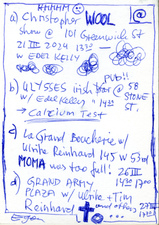 HHHHM
a) Christopher WOOL @
show @ 101 Greenwich St
21 III 2024 1330
W EDEK KELLY
PUB!!
b) ULYSSES irish bar @ 58
W/ Edek Kelly 14 STONE ST.
→ Calcium Test
c) La Grand Boucherie w/
Ulrike Reinhard 145 W 53rd
MOMA was too full! 26 III
d) GRAND ARMY 14
PLAZA w/ Ulrike + Tim
Reinhard and others 27 III